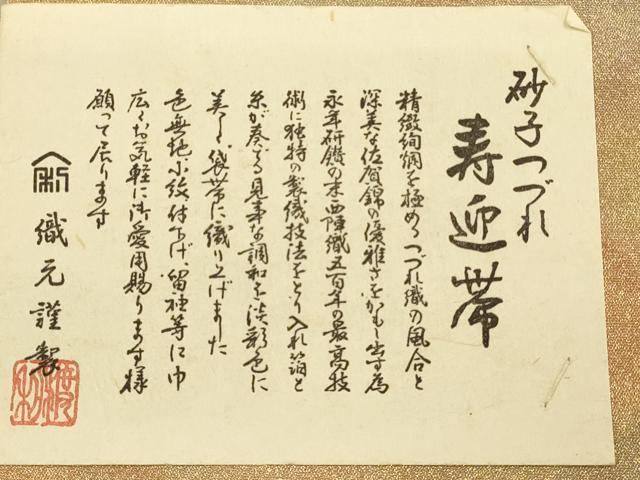 砂子つづれ
寿迎帯
精緻絢爛を極めるつづれ織の風合と
深美な佐賀錦の優雅さをかもし出す為
永年研鑽の末西陣織五百年の最高技
術に独特の製織技法をとり入れ箔と
糸が奏でる見事な調和を淡彩色に
美しく袋帯に織り上げました
色無地小紋付下げ、留袖等に巾
広くお気軽に御愛用賜ります様
願って居ります
織元謹製